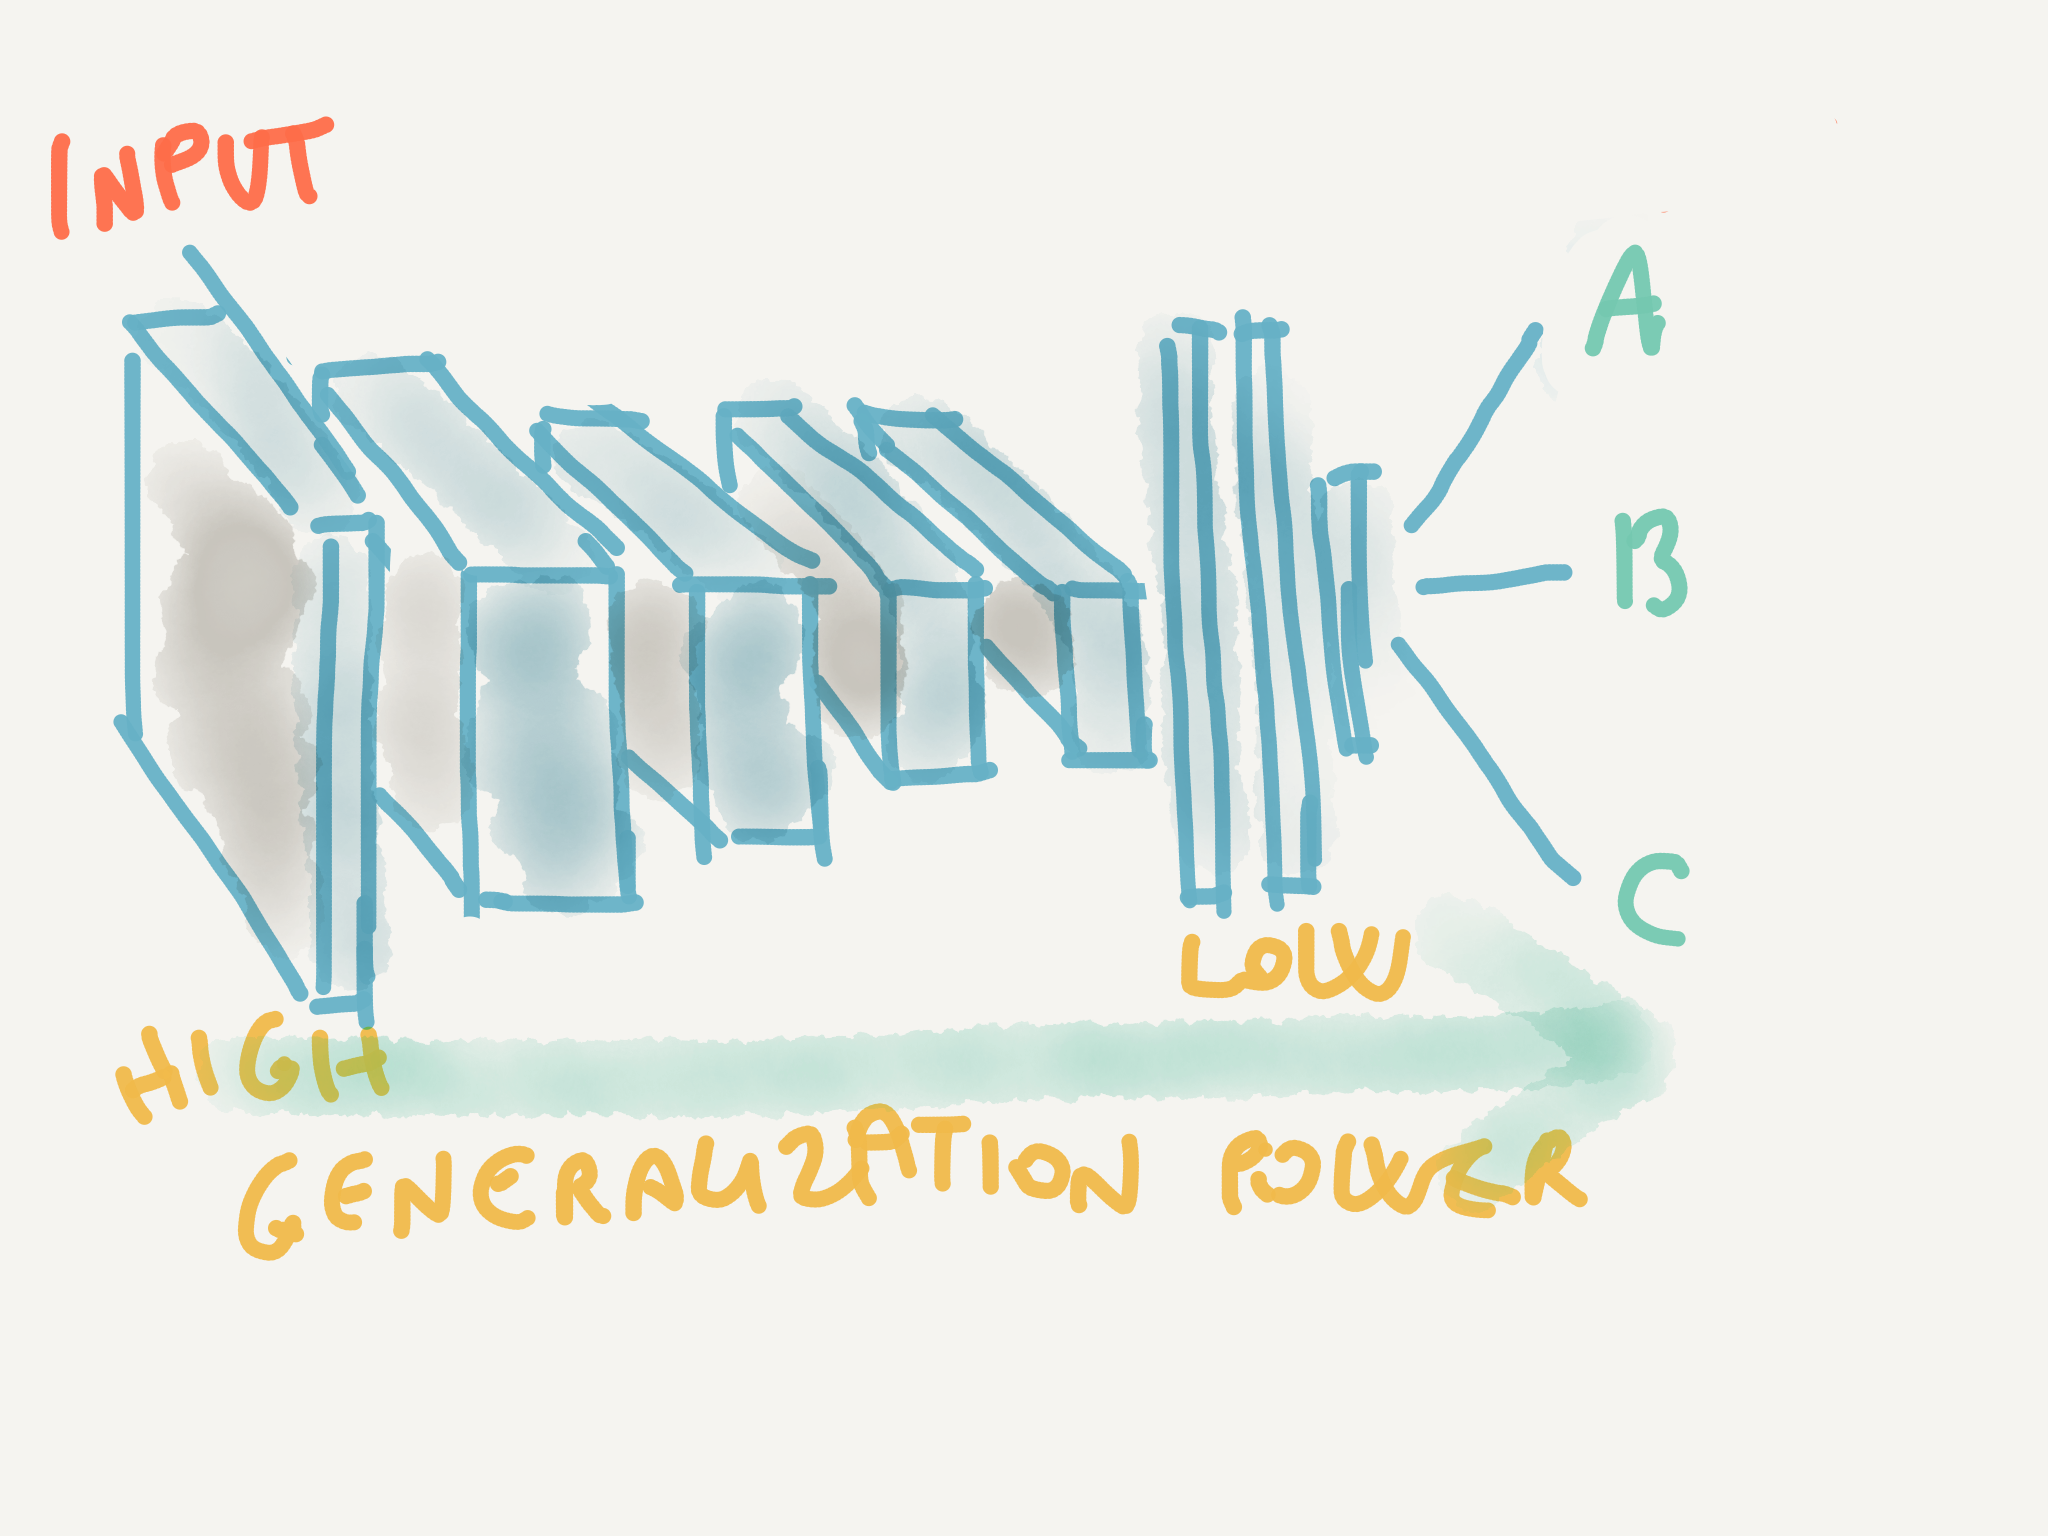 INPUT
A
B
C
LOW
HIGH
GENERALIZATION POWER